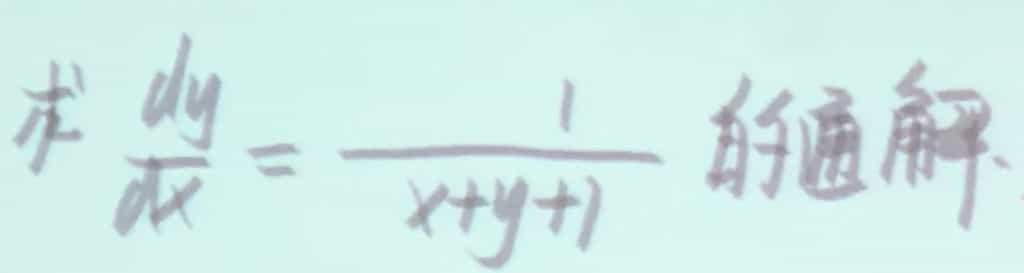 求 dy/dx = 1/(x+y+1) 的通解.